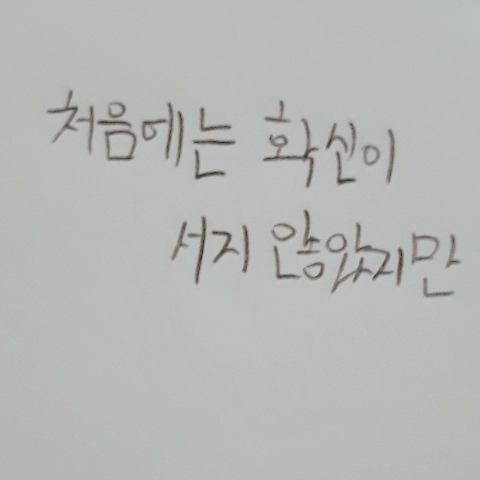 처음에는 확신이
서지 않았지만